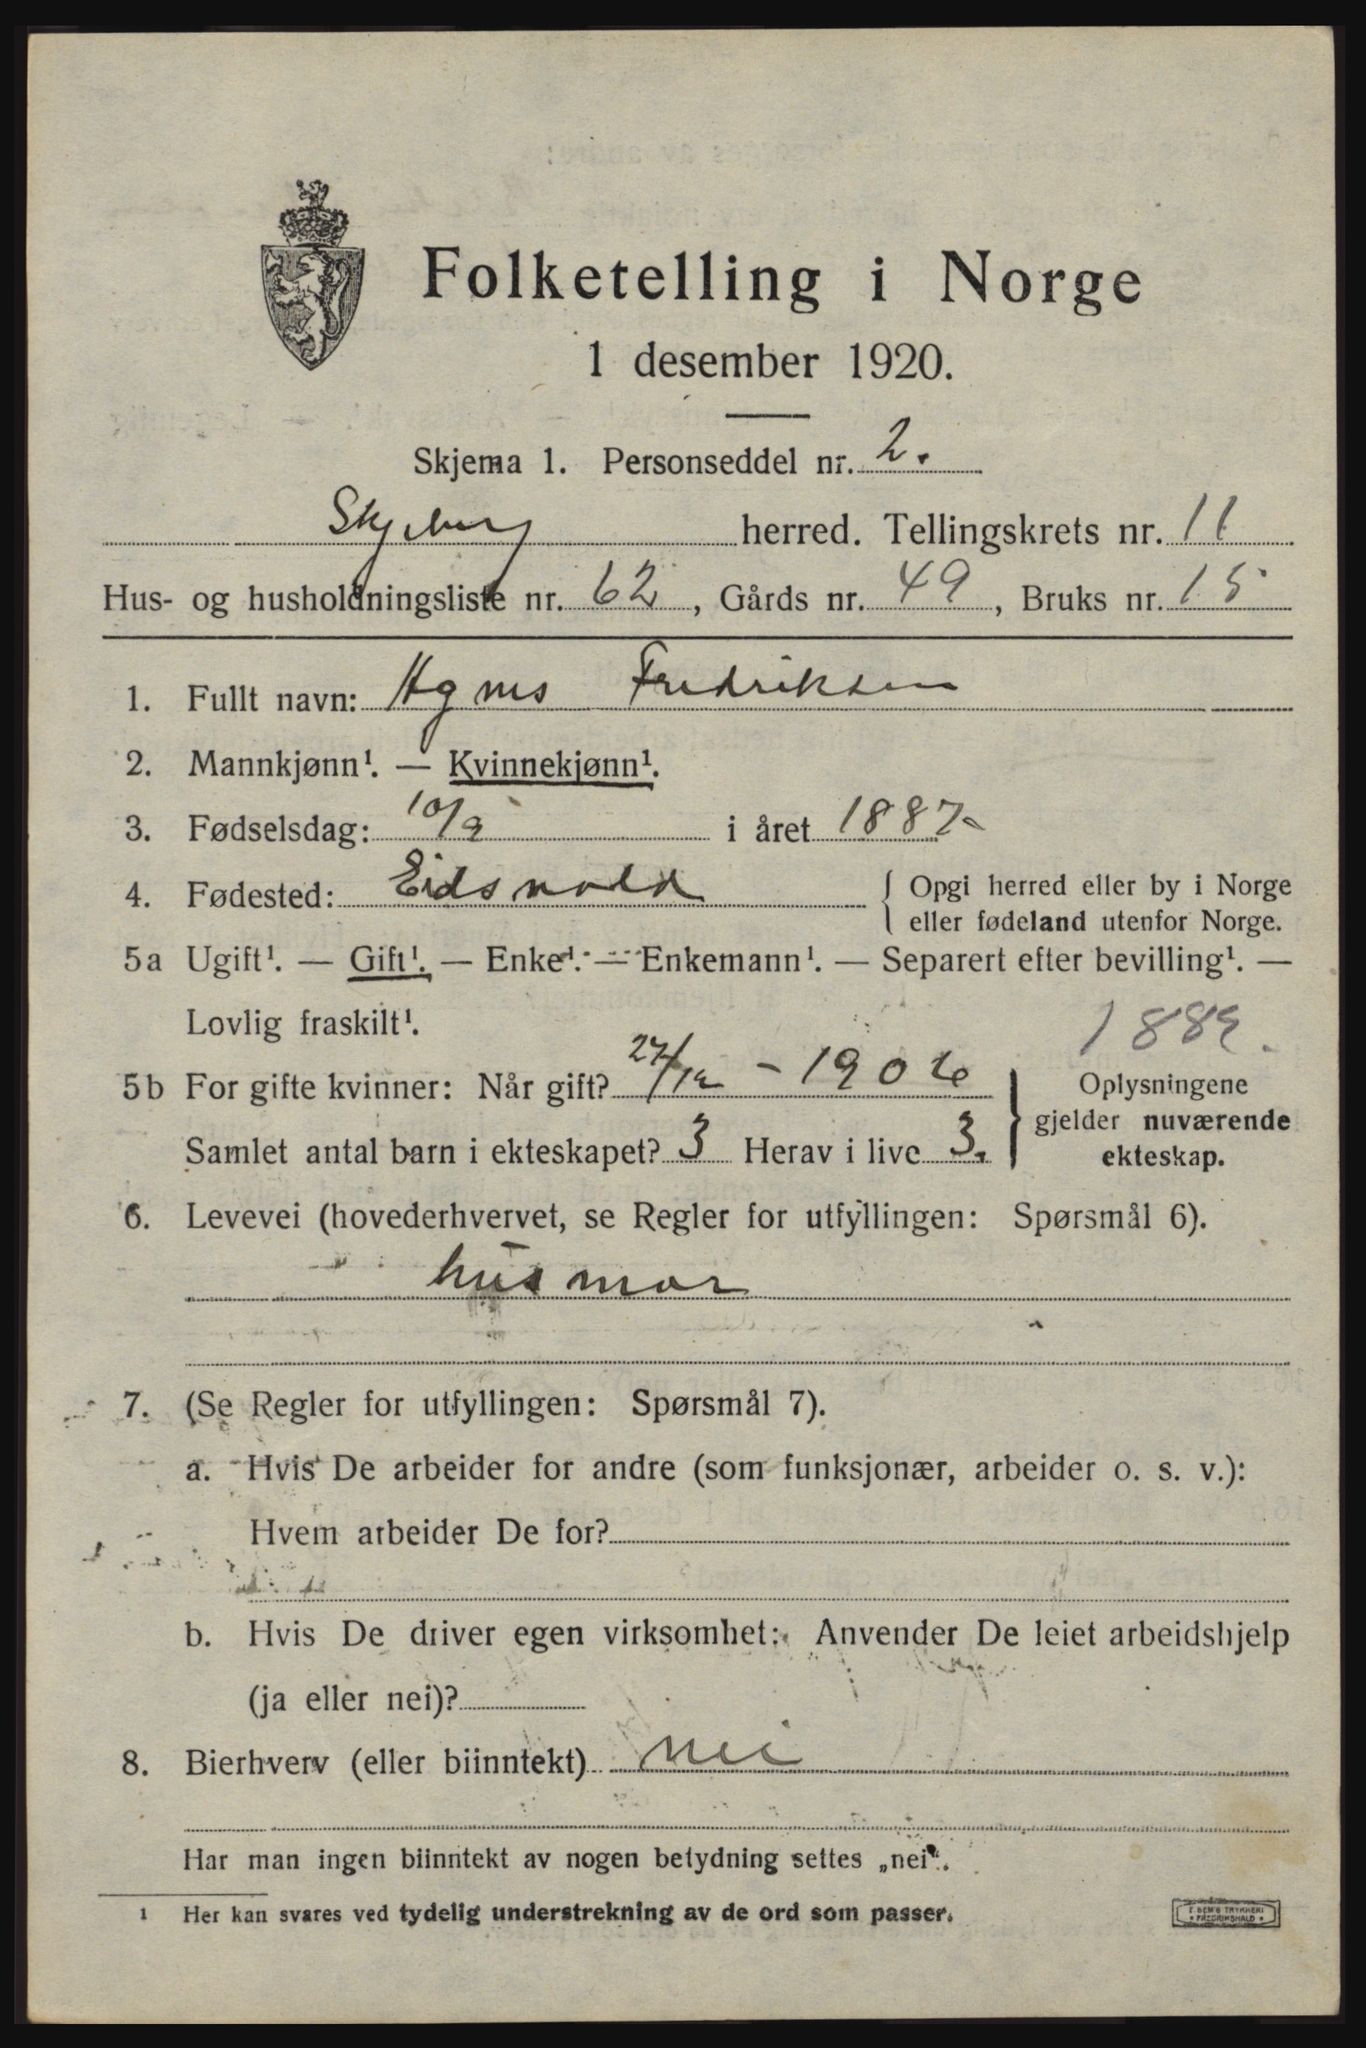 Folketelling i Norge
1 desember 1920.
Skjema 1. Personseddel nr. 2.
Skjeberg herred. Tellingskrets nr. 11
Hus- og husholdningsliste nr. 62, Gårds nr. 49, Bruks nr. 15
1. Fullt navn: Agnes Fredriksen
2. Mannkjønn¹. — Kvinnekjønn¹.
3. Fødselsdag: 10/9 i året 1887
4. Fødested: Eidsvold { Opgi herred eller by i Norge
eller fødeland utenfor Norge.
5a Ugift¹. — Gift¹. — Enke¹. — Enkemann¹. — Separert efter bevilling¹. —
Lovlig fraskilt¹.
188
5b For gifte kvinner: Når gift? 27/12 - 1906 } Oplysningene
gjelder nuværende
Samlet antal barn i ekteskapet? 3 Herav i live 3.
ekteskap.
6. Levevei (hovederhvervet, se Regler for utfyllingen: Spørsmål 6).
husmor
7. (Se Regler for utfyllingen: Spørsmål 7).
a. Hvis De arbeider for andre (som funksjonær, arbeider o. s. v.):
Hvem arbeider De for?
b. Hvis De driver egen virksomhet: Anvender De leiet arbeidshjelp
(ja eller nei)?
8. Bierhverv (eller biinntekt) nei
Har man ingen biinntekt av nogen betydning settes „nei“.
¹ Her kan svares ved tydelig understrekning av de ord som passer.
E. SEM'S TRYKKERI
• FREDRIKSHALD •